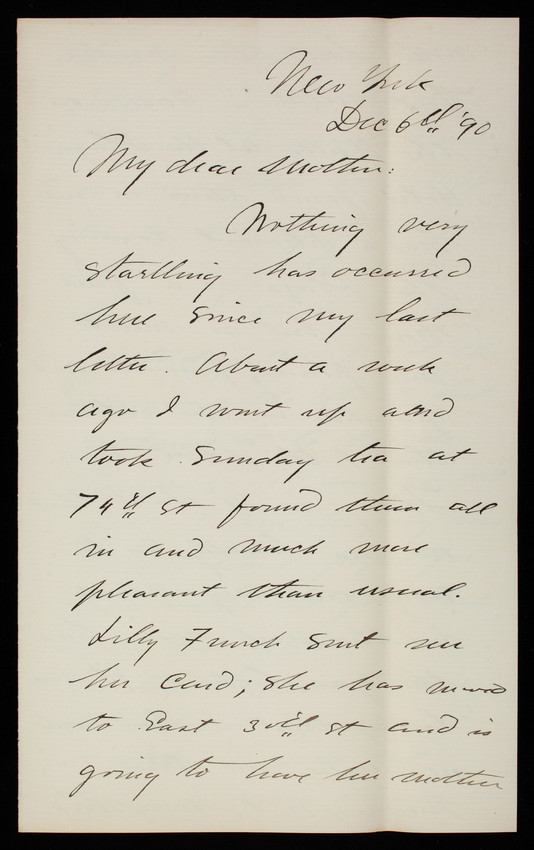 New York
Dec 6th '90
My dear Mother:
Nothing very
startlling has occurred
here since my last
letter. About a week
ago I went up and
took Sunday tea at
74th St found them all
in and much more
pleasant than usual.
Lilly French sent me
her card; she has moved
to East 30th St and is
going to have her mother